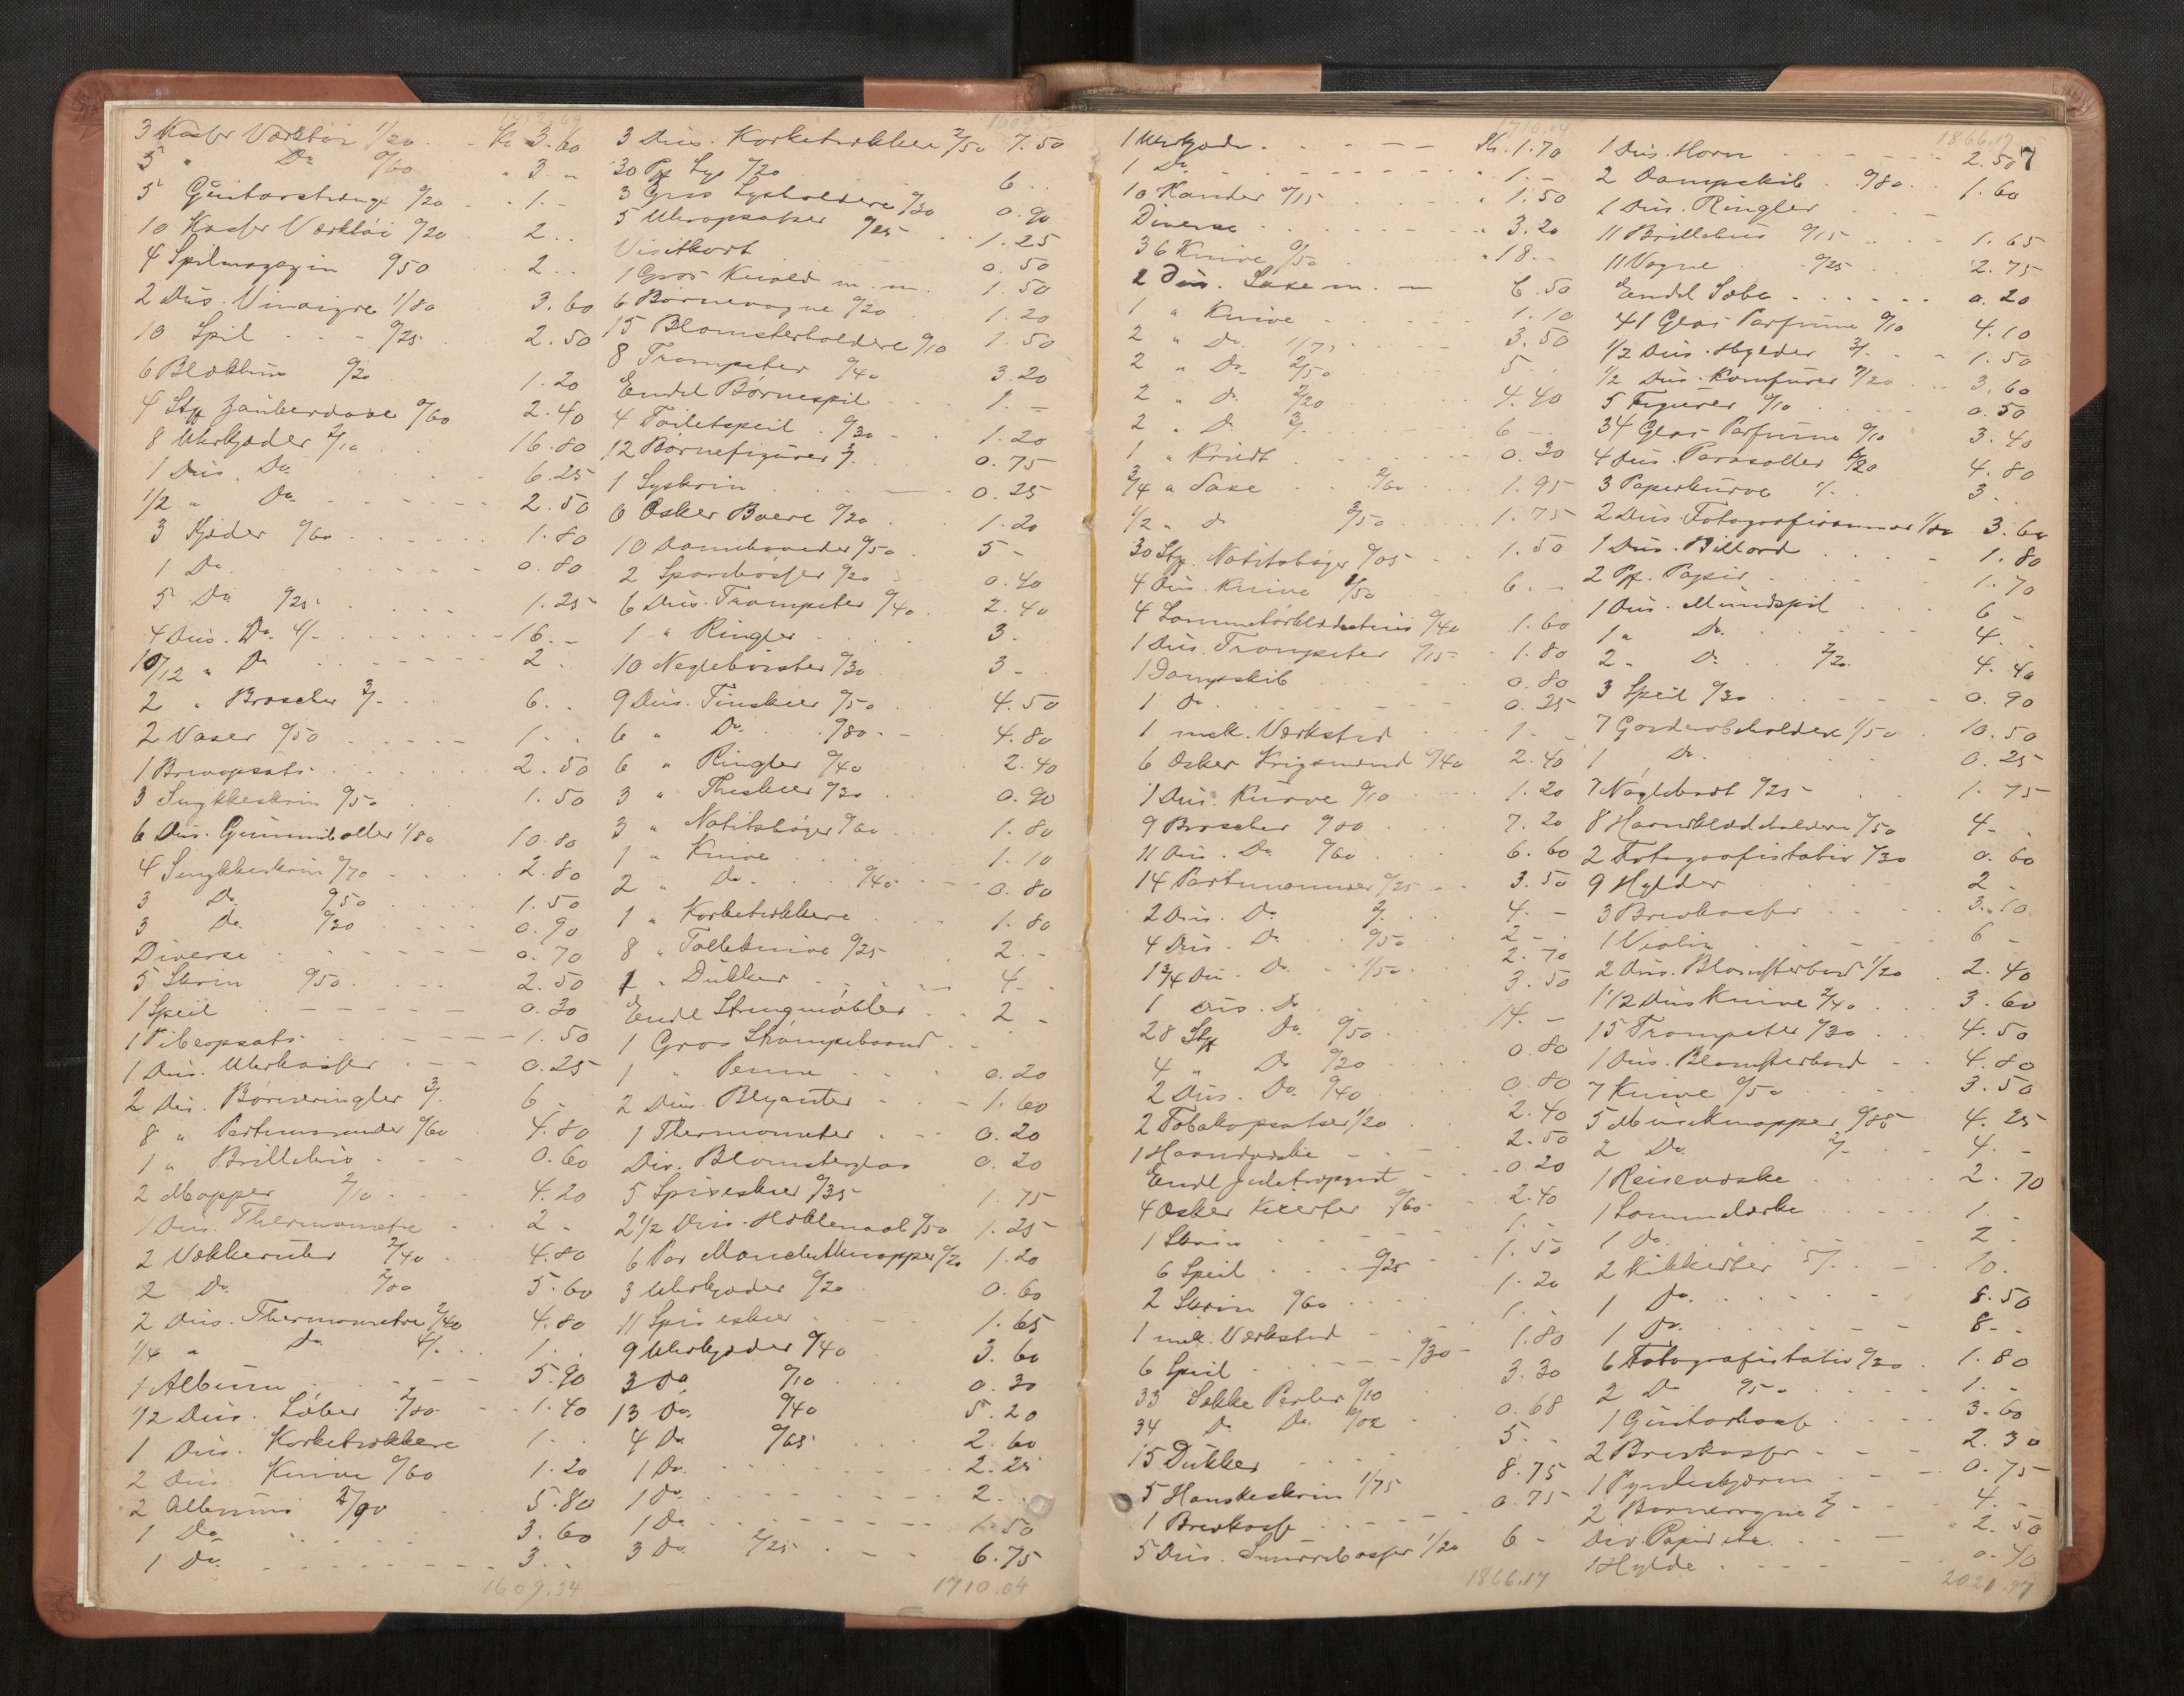 3 Kasser Værktøi 1/20 . . Kr 3.60
5 " Do 0/60 " 3. "
5 Guitarstrenge 0/20 . . 1. -
10 Kasser Værktøi 0/20 2 . .
4 Spilmagazin 0/50 . 2 . .
2 Dus. Vinaigre 1/80 3.60
10 Spil . . - 0/25 . 2.50
6 Blækhus 0/20 1.20
4 Stk Zauberdaase 0/60 2.40
8 Uhrkjæder 2/10 . . 16.80
1 Dus. Do . . 6.25
1/2 " Do . . . . 2.50
3 Kjæder 0/60 . . . . 1.80
1 Do . . . . 0.80
5 Do 0/25 . . . . 1.25
4 Dus. Do. 4/- . . . . 16. -
10/12 " Do . . . . 2 .
2 " Broscher 3/- . . 6 . .
2 Vaser 0/50 . . . . 1 - .
1 Brevopsats . . . . 2.50
3 Smykkeskrin 0/50 . . 1.50
6 Dus. Gummiboller 1/80 10.80
4 Smykkeskrin 0/70 . . 2.80
3 Do 0/50 . . . 1.50
3 Do. 0/30 . . . . 0.90
Diverse . . . . 0.70
5 Skrin 0/50 . . . . 2.50
1 Speil . . . . 0.30
1 Pibeopsats . . . . 1.50
1 Dus. Uhrkasser . . . 0.25
2 Dus. Børneringler 3/- 6 -
8 " Portemonnæer 0/60 4.80
1 " Brillehus . . . 0.60
2 Mapper 2/10 . . . 4.20
1 Dus. Thermometre . . 2 -
2 Vækkeruhr 2/40 . 4.80
2 Do 2/80 5.60
2 Dus. Thermometre 2/40 4.80
1/4 " Do. 4/- . . . 1 . .
1 Album . . . . 5.90
1/2 Dus. Løber 2/80 . . 1.40
1 Dus. Korketrækkere 1 - .
2 Dus. Knive 0/60 1.20
2 Albums 2/90 . 5.80
1 Do . . . . 3.60
1 Do . . . . 3 . .
1609.34
3 Dus. Korketrækkere 2/50 7.50
30 Pk Lys 0/20 6 . .
3 Gros Lysholdere 0/30 0.90
5 Uhropsatser 0/25 . . 1.25
Visitkort 0.50
1 Gros Knold m. m. 1.50
6 Børnevogne 0/20 1.20
15 Blomsterholdere 0/10 1.50
8 Trompeter 0/40 3.20
Endel Børnespil . . . 1. -
4 Toiletspeil 0/30 - . 1.20
12 Børnefigurer . . 0.75
1 Lyskrin . . . 0.25
6 Æsker Boere 0/20 . . 1.20
10 Dambrædder 0/50 . 5 -
2 Sparebøsser 0/20 0.40
6 Dus. Trompeter 0/40 . 2.40
1 " Ringler . . . 3 .
10 Neglebørster 0/30 . 3 - .
9 Dus. Tinskeer 0/50 . 4.50
6 " Do. 0/80 . - 4.80
6 " Ringler 0/40 2.40
3 " Theskeer 0/30 . . 0.90
3 " Notitsbøger 0/60 . . 1.80
1 " Knive . . . 1.10
2 " Do . . 0/40 . . 0.80
1 " Korketrækkere . . 1.80
8 " Tællekniver 0/25 . . 2 . -
1 " Dukker . . . 4 - .
Endl Strengmøbler . . 2 -
1 Gros Strømpebaand . .
1 " Penne . . . 0.20
2 Dus. Blyanter . . . 1.60
1 Thermometer . . . 0.20
Div. Blomsterglas 0.20
5 Spiseskeer 0/35 1.75
2 1/2 Dus. Heklenaal 0/50 1.25
6 Par Manchetknapper 0/20 1.20
3 Uhrkjæder 0/20 0.60
11 Spiseskeer . . . 1.65
9 Uhrkjæder 0/40 . 3.60
3 Do 0/10 . . . 0.30
13 Do. 0/40 5.20
4 Do 0/65 . . . 2.60
1 Do. . . . . 2.25
1 Do . . . . 2 . .
1 Do . . . . 1.50
3 Do. 2/25 . . . 6.75
1710.04
1710.04
1 Uhrkjæde . . . . Kr. 1.70
1 Do . . . . 1. -
10 Kander 0/15 . . . " 1.50
Diverse . . . . " 3.20
36 Knive 0/50 . . . " 18 . -
2 Dus. Saxe m. - 6.50
1 " Knive . . . 1.10
2 " Do. 1/75 . . . 3.50
2 " Do 2/50 . . . 5 - .
2 " Do 2/20 . . . 4.40
2 " D. 3/- . . . 6 - .
1 " Kridt . . . . 0.30
3/4 " Saxe . . 2/60 . . 1.95
1/2 " d. 3/50 . . . 1.75
30 Stk. Notitsbøger 0/05 . . 1.50
4 Dus. Knive 1/50 . . 6 . -
4 Lommetørklædehus 0/40 1.60
1 Dus. Trompeter 0/15 . 1.80
1 Dampskib . . . . 0.80
1 d. . . . . 0.25
1 mek. Værksted . . 1 - -
6 Æsker Krigsmænd 0/40 2.40
1 Dus. Kurve 0/10 . . 1.20
9 Broscher 0/80 . . . 7.20
11 Dus. Do. 0/60 . . . 6.60
14 Portemonnæer 0/25 . . 3.50
2 Dus. Do 2/- . . . 4. -
4 Dus. Do . . 0/50 . . 2 - .
1 3/4 Du. Do . . 1/50 . . 2.70
1 Dus. Do . . . 3.50
28 Stk Do 0/50 . . . 14. -
4 " Do 0/20 . . . 0.80
2 Dus. Do. 0/40 . . . 0.80
2 Tobakopsatser 1/20 . . 2.40
1 Haandvæske . . . 2.50
Endl Juletræpynt . . . 0.20
4 Æsker Kjerter 0/60 . . 2.40
1 Skrin . . . . 1 . -
6 Speil . . . 0/25 . . 1.50
2 Skrin 0/60 . . . 1.20
1 mek. Værksted . . . 1 . -
6 Speil . . . . 0/30 . 1.80
33 Sække Perler 0/10 . . 3.30
34 Do Do. 0/02 . 0.68
15 Dukker . . . 5 - .
5 Hanskeskrin 1/75 8.75
1 Brevkasse . . . . 0.75
5 Dus. Smørrebøsser 1/20 6 -
1866.17
1866.17
1 Dus. Horn . . . . 2.50
2 Dampskib . 0/80 . . 1.60
1 Dus. Ringler . . .
11 Brillehus 0/15 . . . 1.65
11 Vogne . . 0/25 . . 2.75
Endel Sæbe . . . . 0.20
41 Glas Parfume 0/10 4.10
1/2 Dus. Hylder 3/- . . 1.50
1/2 Dus. Komfurer 7/20 . . 3.60
5 Figurer 0/10 . . . 0.50
34 Glas Parfume 0/10 3.40
4 Dus. Parasoller 1/20 4.80
3 Papirkurve 1/- . . 3 . .
2 Dus. Fotografirammer 1/80 3.60
1 Dus. Billard . . . . 1.80
2 Pk. Papir . . . . 1.70
1 Dus. Mundspil . . . 6 -
1 " Do. . . . . 4. -
2 " Do . . 2/20 . 4.40
3 Speil 0/30 . . . . 0.90
7 Garderobeholdere 1/50 . 10.50
1 Do. . . . . 0.25
7 Nøglebræt 0/25 . . 1.75
8 Haandklædeholdere 0/50 4 - .
2 Fotografistativ 0/30 0.60
9 Hylder . . . . 2 -
3 Brevkasser . . . 3.10
1 Violin . . . . 6 -
2 Dus. Blomsterbord 1/20 . 2.40
1 1/2 Dus Knive 2/40 . . 3.60
15 Trompeter 0/30 . . 4.50
1 Dus. Blomsterbord . . 4.80
7 Knive 0/50 . . . 3.50
5 Musikmapper 0/85 . 4.25
2 Do. 2/- . . 4. -
1 Reisevæske . . . 2.70
1 Lommelærke . . . 1. -
1 Do . . . . 2 -
2 Kikkerter 5/- . . 10.
1 Do. . . . . 8.50
1 Do. . . . . 8 - .
6 Fotografistativ 0/30 . 1.80
2 Do 0/50 . . . . 1. -
1 Guitarkasse . . . 3.60
2 Brevkasser . . . 2.30
1 Pyndeskjærm . . . 0.75
2 Børnevogne 2/- . . . 4. -
Div Papir etc. . . . " 2.50
1 Hylde . . . . 0.70